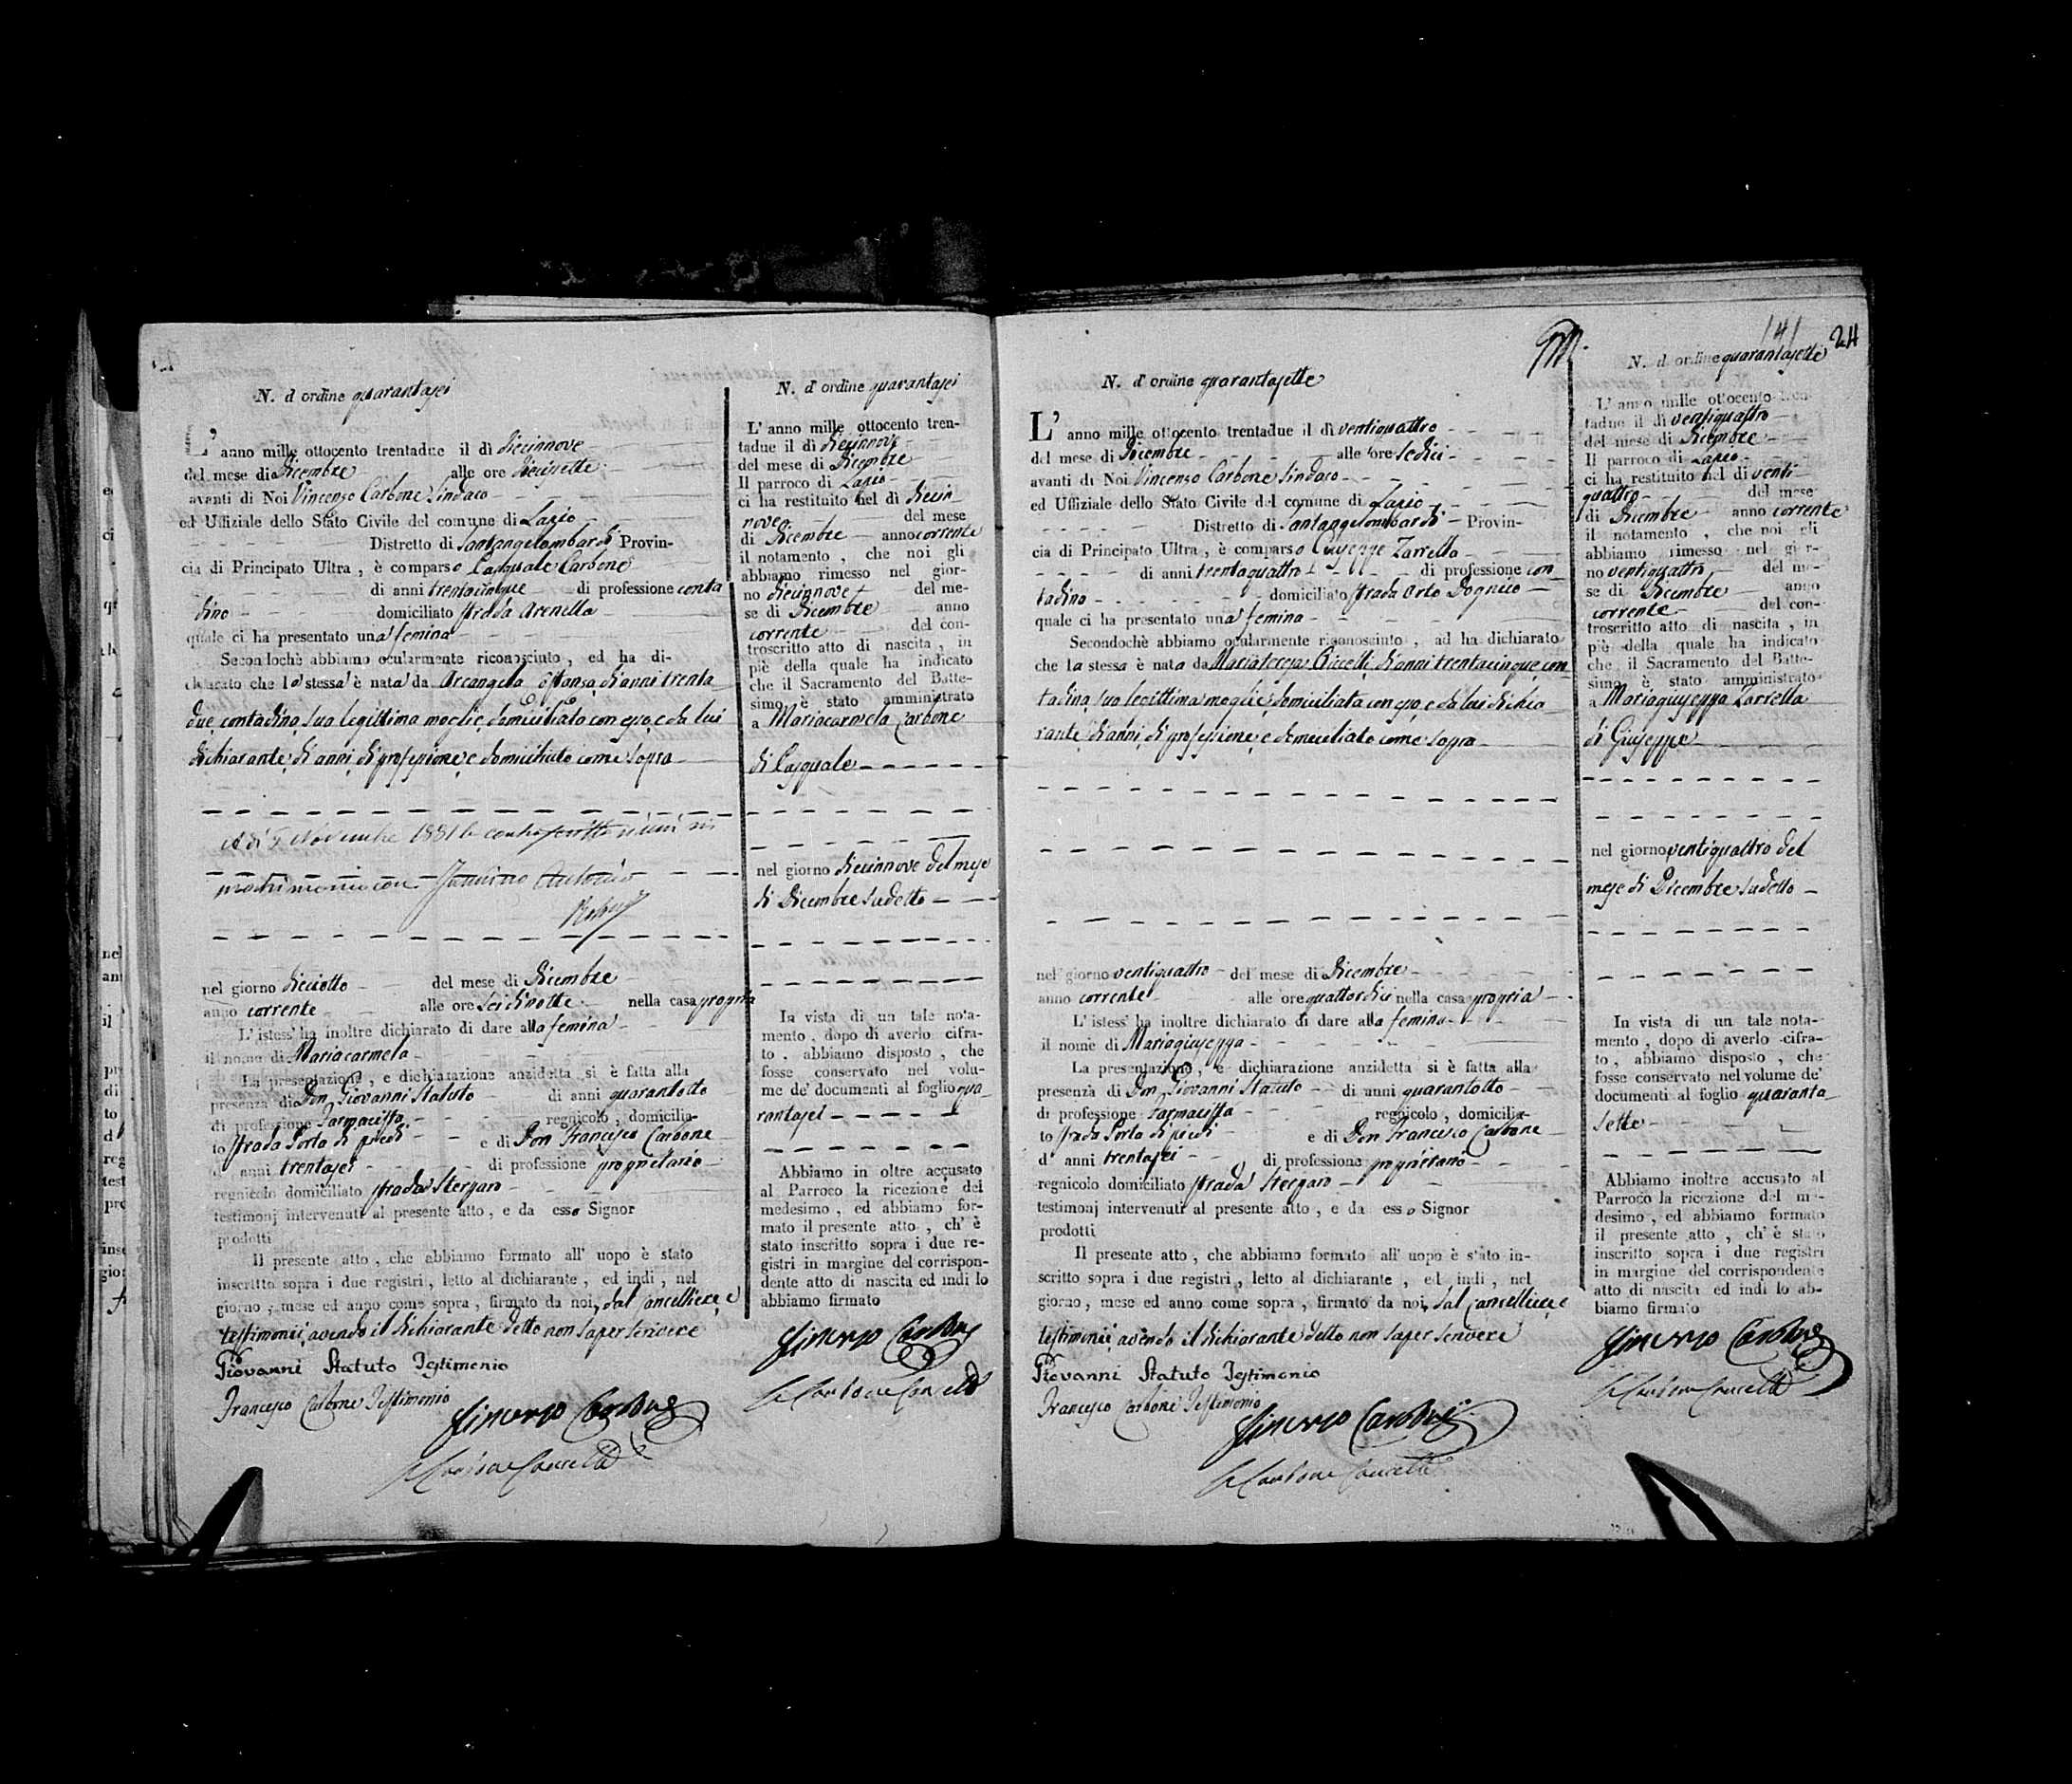 N. d'ordine quarantasei
L' anno mille ottocento trentadue il dì diecinnove
del mese di Dicembre alle ore diecisette
avanti di Noi Vincenzo Carbone Sindaco
ed Uffiziale dello Stato Civile del comune di Lapio
Distretto di Santangelombardi Provin-
cia di Principato Ultra, è comparso Pasquale Carbone
di anni trentacinque di professione conta
dino domiciliato strada Arenella
quale ci ha presentato una femina
Secondochè abbiamo ocularmente riconosciuto, ed ha di-
chiarato che la stessa è nata da Arcangela di anni trenta
due contadina, sua legittima moglie, domiciliata con esso, e da lui
dichiarante, di anni, di professione, e domiciliato come sopra
A dì 5 Novembre 1881 la
matrimonio con Antonio
nel giorno dieciotto del mese di Dicembre
anno corrente alle ore sei di notte nella casa propria
L' istess' ha inoltre dichiarato di dare alla femina
il nome di Mariacarmela
La presentazione, e dichiarazione anzidetta si è fatta alla
presenza di Don Giovanni Statuto di anni quarantotto
di professione Farmacista regnicolo, domicilia-
to strada Porta di piedi e di Don Francesco Carbone
d' anni trentasei di professione proprietario
regnicolo domiciliato strada Stergaro
testimonj intervenuti al presente atto, e da esso Signor
prodotti
Il presente atto, che abbiamo formato all' uopo è stato
inscritto sopra i due registri, letto al dichiarante, ed indi, nel
giorno, mese ed anno come sopra, firmato da noi, dal Cancelliere, e
testimonii, avendo il dichiarante detto non saper scrivere
Giovanni Statuto Testimonio
Francesco Carbone Testimonio
Vincenzo Carbone
Carbone Cancell
N. d' ordine quarantasei
L' anno mille ottocento tren-
tadue il dì diecinnove
del mese di Dicembre
Il parroco di Lapio
ci ha restituito nel dì diecin
nove del mese
di Dicembre anno corrente
il notamento, che noi gli
abbiamo rimesso nel gior-
no diecinnove del me-
se di Dicembre anno
corrente del con-
troscritto atto di nascita, in
piè della quale ha indicato
che il Sacramento del Batte-
simo è stato amministrato
a Mariacarmela Carbone
di Pasquale
nel giorno diecinnove del mese
di Dicembre sudetto
In vista di un tale nota-
mento, dopo di averlo cifra-
to, abbiamo disposto, che
fosse conservato nel volu-
me de' documenti al foglio qua-
rantasei
Abbiamo in oltre accusato
al Parroco la ricezione del
medesimo, ed abbiamo for-
mato il presente atto, ch' è
stato inscritto sopra i due re-
gistri in margine del corrispon-
dente atto di nascita ed indi lo
abbiamo firmato
Vincenzo Carbone
Carbone Cancell
N. d' ordine quarantasette
L' anno mille ottocento trentadue il dì ventiquattro
del mese di Dicembre alle ore sedici
avanti di Noi Vincenzo Carbone Sindaco
ed Uffiziale dello Stato Civile del comune di Lapio
Distretto di Santangelombardi Provin-
cia di Principato Ultra, è comparso Giuseppe Zarrella
di anni trentaquattro di professione con
tadino domiciliato strada Orto Dognico
quale ci ha presentato una femina
Secondochè abbiamo ocularmente riconosciuto, ad ha dichiarato
che la stessa è nata da Mariateresa di anni trentacinque, con
tadina, sua legittima moglie, domiciliata con esso, e da lui dichia
rante, di anni, di professione, e domiciliato come sopra
nel giorno ventiquattro del mese di Dicembre
anno corrente alle ore quattordici nella casa propria
L' istess' ha inoltre dichiarato di dare alla femina
il nome di Mariagiuseppa
La presentazione, e dichiarazione anzidetta si è fatta alla
presenza di Don Giovanni Statuto di anni quarantotto
di professione Farmacista regnicolo, domicilia-
to strada Porta di piedi e di Don Francesco Carbone
d' anni trentasei di professione proprietario
regnicolo domiciliato strada Stergaro
testimonj intervenuti al presente atto, e da esso Signor
prodotti
Il presente atto, che abbiamo formato all' uopo è stato in-
scritto sopra i due registri, letto al dichiarante, ed indi, nel
giorno, mese ed anno come sopra, firmato da noi, dal Cancelliere, e
testimonii, avendo il dichiarante detto non saper scrivere
Giovanni Statuto Testimonio
Francesco Carbone Testimonio
Vincenzo Carbone
Carbone Cancell
141 24
N. d' ordine quarantasette
L' anno mille ottocento tren-
tadue il dì ventiquattro
del mese di Dicembre
Il parroco di Lapio
ci ha restituito nel dì venti
quattro del mese
di Dicembre anno corrente
il notamento, che noi gli
abbiamo rimesso nel gior-
no ventiquattro del me-
se di Dicembre anno
corrente del con-
troscritto atto di nascita, in
piè della quale ha indicato
che il Sacramento del Batte-
simo è stato amministrato
a Mariagiuseppa Zarrella
di Giuseppe
nel giorno ventiquattro del
mese di Dicembre sudetto
In vista di un tale nota-
mento, dopo di averlo cifra-
to, abbiamo disposto, che
fosse conservato nel volume de'
documenti al foglio quaranta
sette
Abbiamo inoltre accusato al
Parroco la ricezione del me-
desimo, ed abbiamo formato
il presente atto, ch' è stato
inscritto sopra i due registri
in margine del corrispondente
atto di nascita ed indi lo ab-
biamo firmato
Vincenzo Carbone
Carbone Cancell